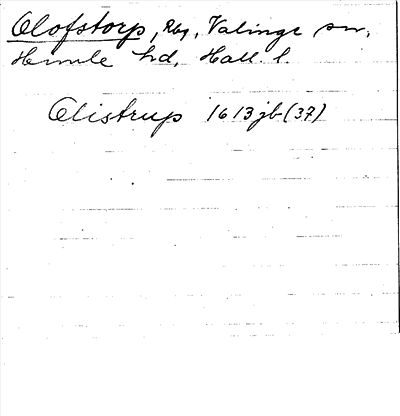 Olofstorp, Rby, Valinge sn,
Himle hd, Hall. l.
Olistrup 1613 jb (37)